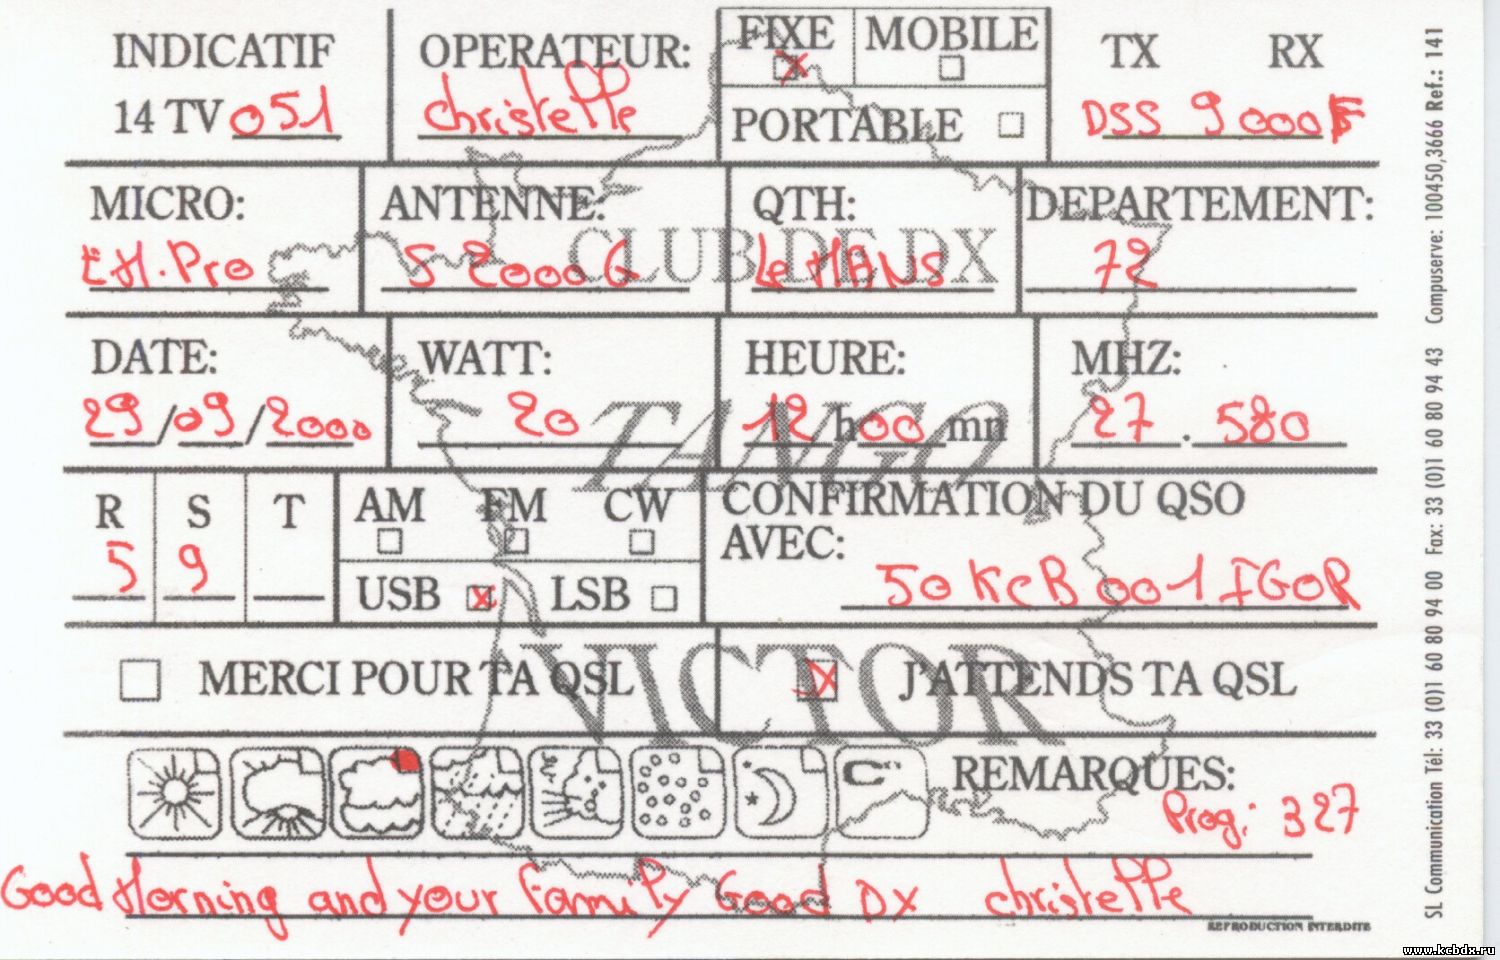 INDICATIF
14 TV 051
OPERATEUR:
christelle
FIXE
MOBILE
PORTABLE
TX RX
DSS 9000
MICRO:
E.M. Pro
ANTENNE:
S 2000 G
QTH:
Le MANS
DEPARTEMENT:
72
CLUB DE DX
DATE:
29/09/2000
WATT:
20
HEURE:
12 h 00 mn
MHZ:
27 . 580
TANGO
R S T
5 9
AM FM CW
USB LSB
CONFIRMATION DU QSO
AVEC:
50 KCB 001 IGOR
MERCI POUR TA QSL
J'ATTENDS TA QSL
VICTOR
REMARQUES:
Prog: 327
Good Morning and your Family Good DX christelle
REPRODUCTION INTERDITE
SL Communication Tél: 33 (0)1 60 80 94 00 Fax: 33 (0)1 60 80 94 43 Compuserve: 100450,3666 Ref.: 141
www.kcbdx.ru